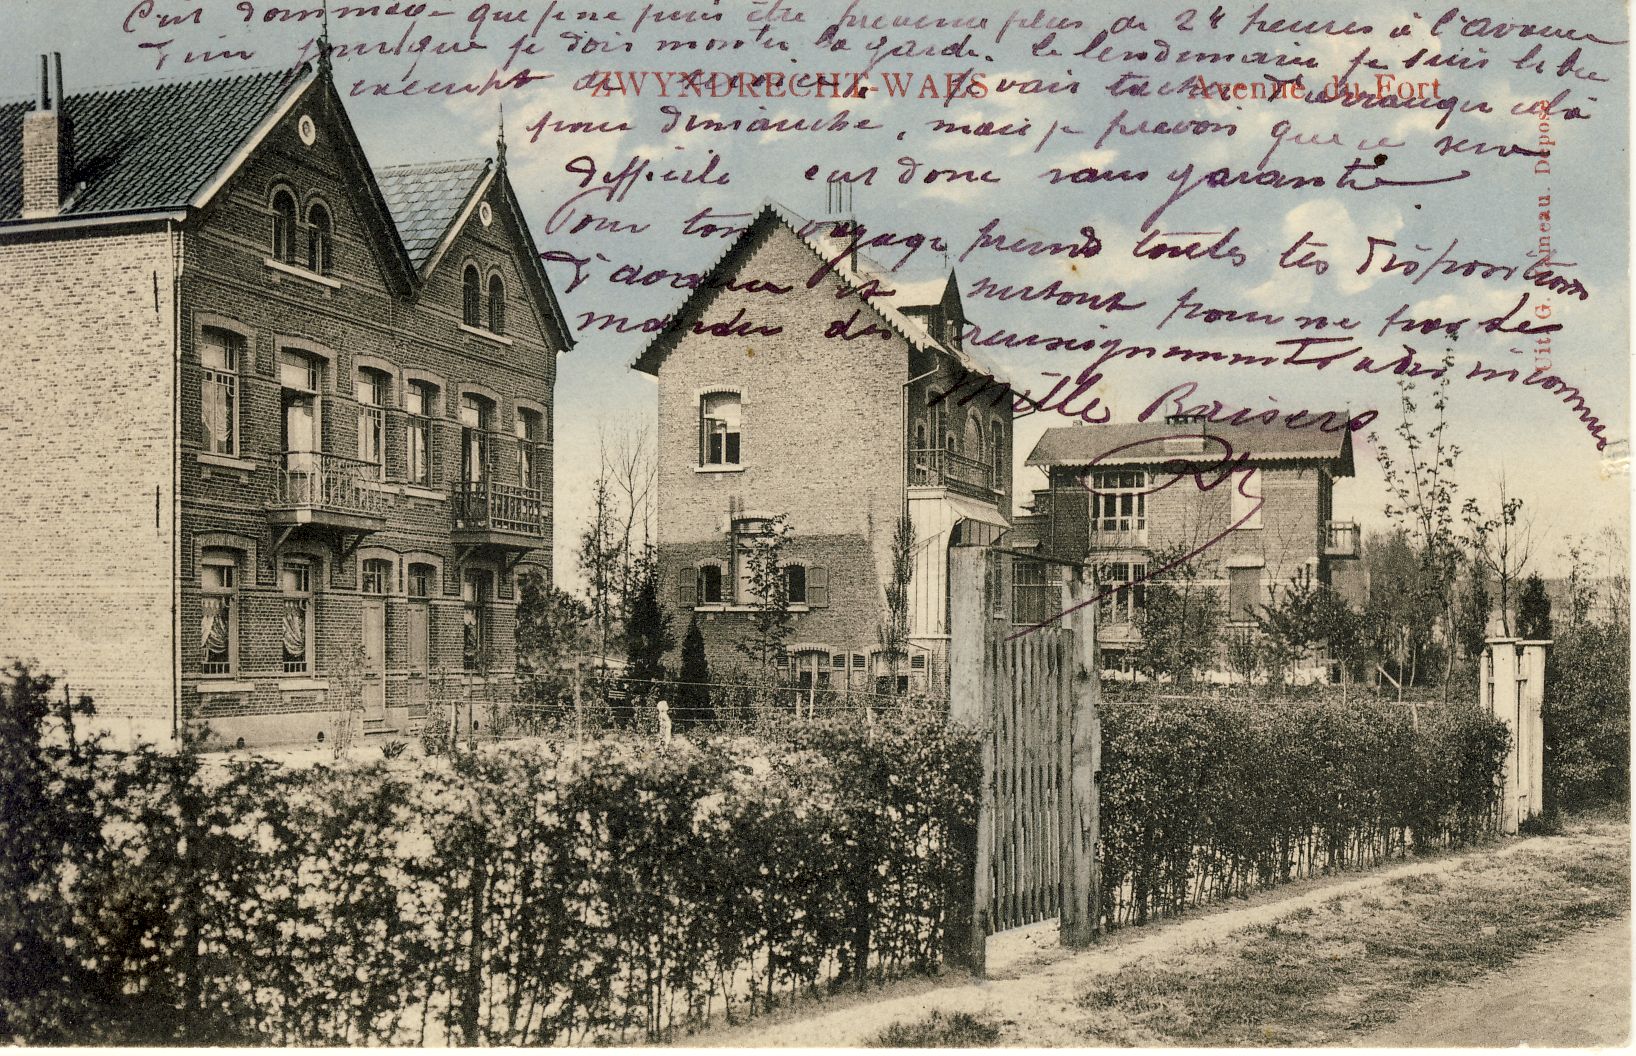 C'est dommage que je ne puis être prevenu plus de 24 heures à l'avance
d'un jour que je dois monter la garde. Le lendemain je suis libre
exempt de service. Je vais tacher d'arranger celà
ZWYNDRECHT-WAES
Avenue du Fort
pour dimanche, mais je prevois que ce sera
difficile c'est donc sans garantie
Pour ton voyage prends toutes tes dispositions
d'avance et surtout pour ne pas de
mander des renseignements à des inconnus
Mille Baisers
Uit. G. Deposé